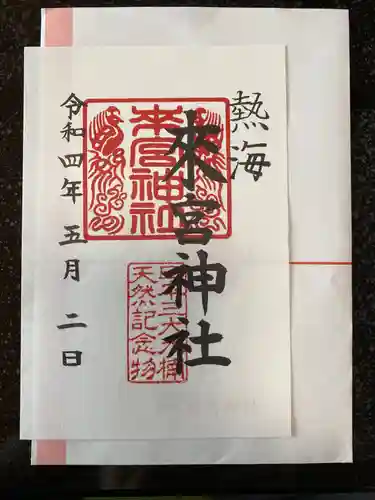 熱海
來宮神社
令和四年 五月 二日
來宮神社
天然記念物